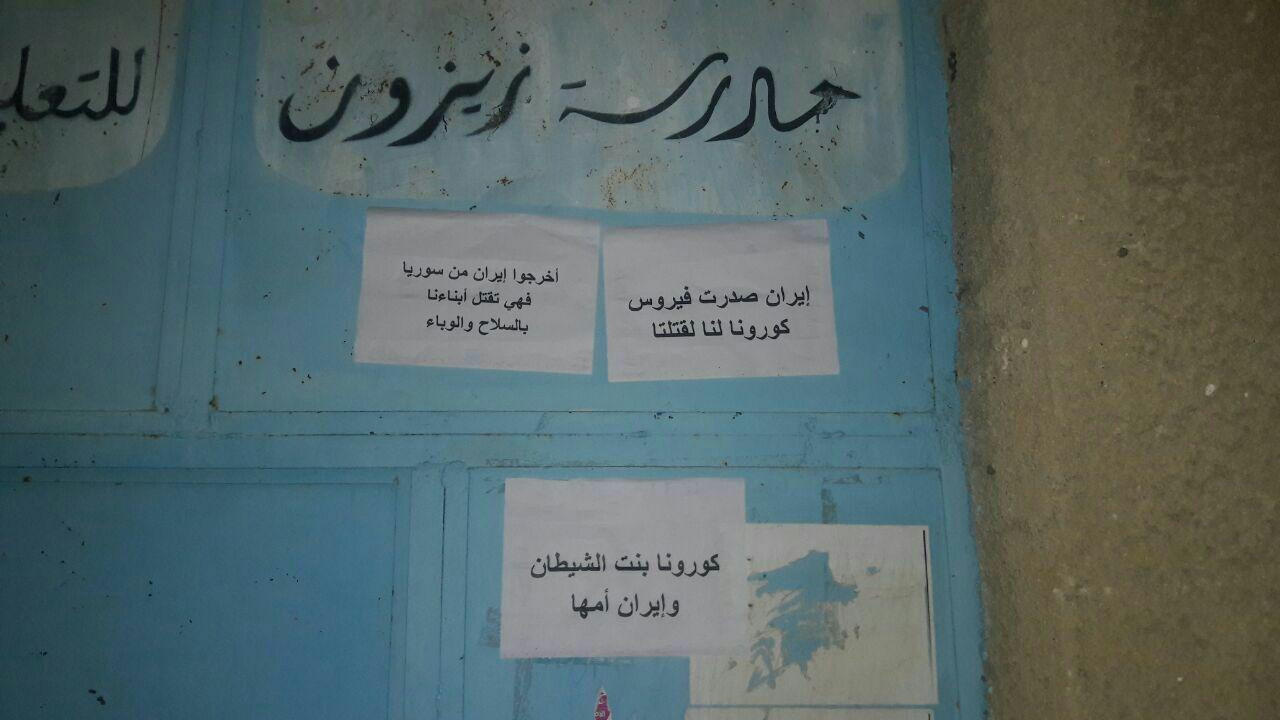 مدرسة زيزون
للتعلي
إيران صدرت فيروس
كورونا لنا لقتلتا
أخرجوا إيران من سوريا
فهي تقتل أبناءنا
بالسلاح والوباء
كورونا بنت الشيطان
وإيران أمها